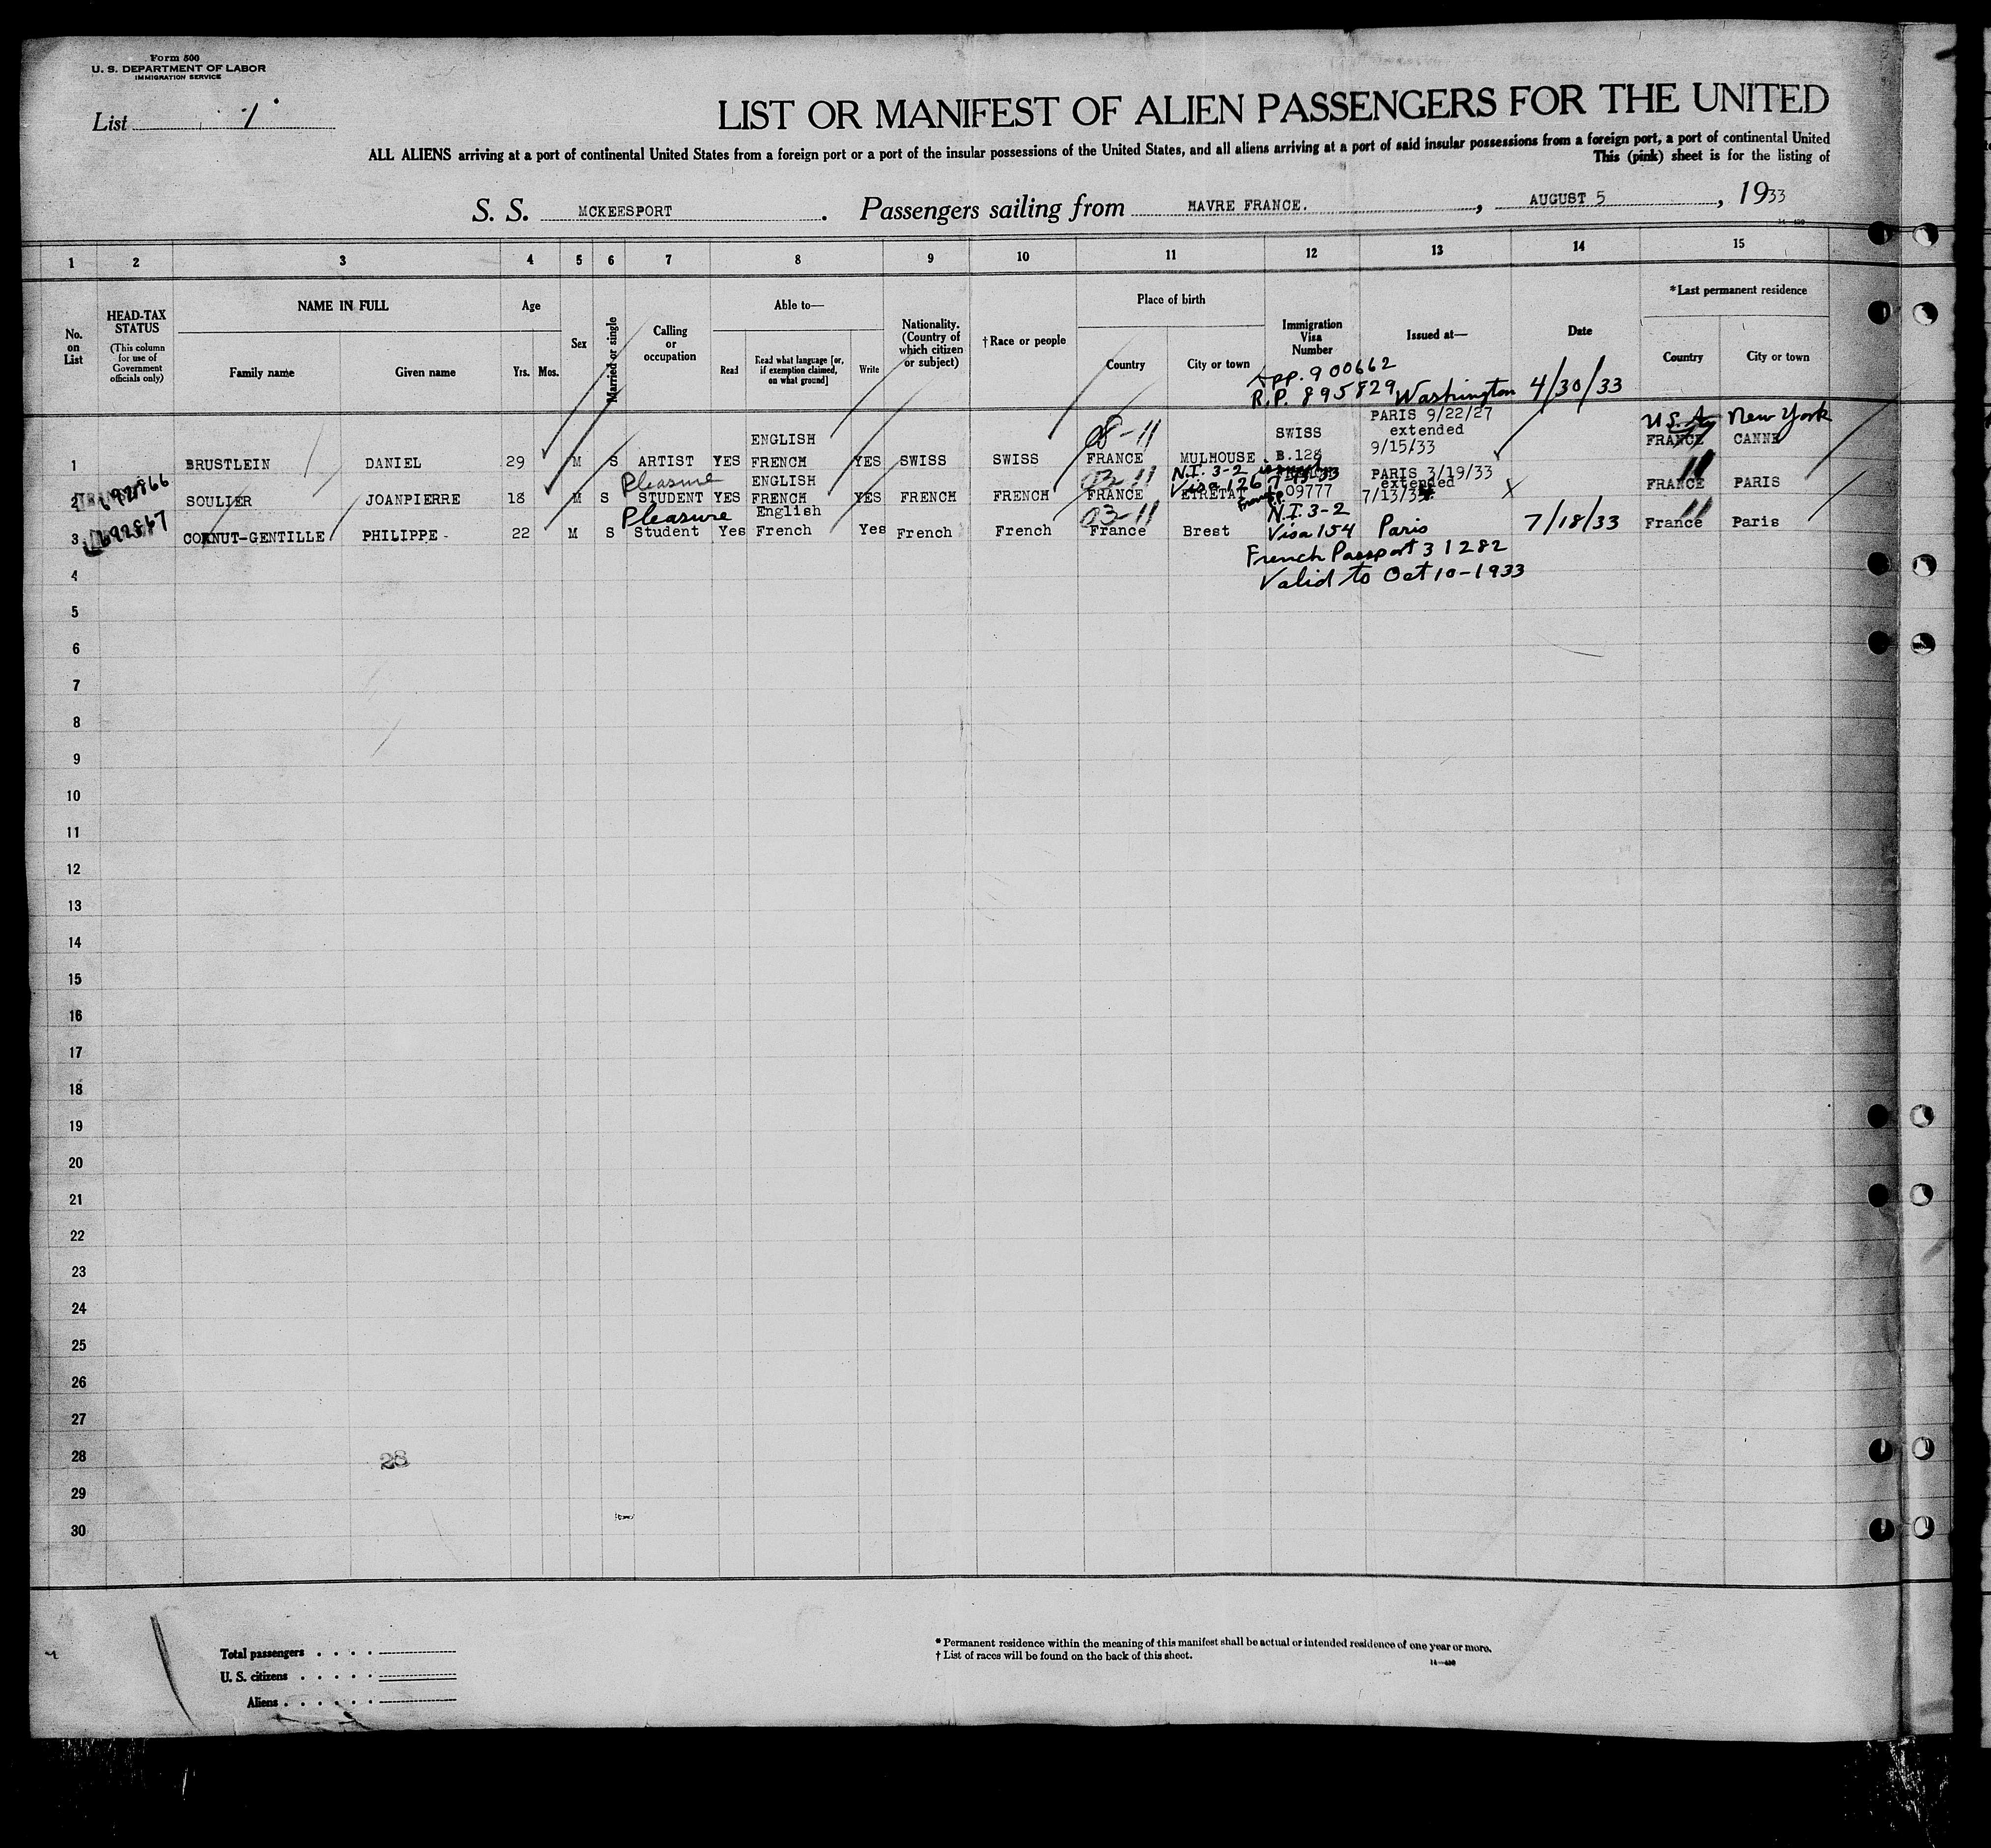 Form 500
U. S. DEPARTMENT OF LABOR
IMMIGRATION SERVICE
List 1
LIST OR MANIFEST OF ALIEN PASSENGERS FOR THE UNITED
ALL ALIENS arriving at a port of continental United States from a foreign port or a port of the insular possessions of the United States, and all aliens arriving at a port of said insular possessions from a foreign port, a port of continental United
This (pink) sheet is for the listing of
S. S. MCKEESPORT. Passengers sailing from HAVRE FRANCE., AUGUST 5, 1933
1 2 3 4 5 6 7 8 9 10 11 12 13 14 15
No. on List
HEAD-TAX STATUS (This column for use of Government officials only)
NAME IN FULL
Family name Given name
Age
Yrs. Mos.
Sex
Married or single
Calling or occupation
Able to—
Read Read what language [or, if exemption claimed, on what ground] Write
Nationality. (Country of which citizen or subject)
† Race or people
Place of birth
Country City or town
Immigration Visa Number
Issued at—
Date
*Last permanent residence
Country City or town
App. 900662
R.P. 895829 Washington 4/30/33
PARIS 9/22/27
08-11 U.S.A. New York
ENGLISH SWISS extended FRANCE CANNE
9/15/33
1 BRUSTLEIN DANIEL 29 M S ARTIST YES FRENCH YES SWISS SWISS FRANCE MULHOUSE B.128
692866 Pleasure ENGLISH 03-11 N.I. 3-2 issued PARIS 3/19/33
Visa 126 7-13-33 extended
2 SOULIER JOANPIERRE 18 M S STUDENT YES FRENCH YES FRENCH FRENCH FRANCE ETRETAT 09777 7/13/34 FRANCE PARIS
692867 Pleasure English 03-11 N.I. 3-2
3 CORNUT-GENTILLE PHILIPPE 22 M S Student Yes French Yes French French France Brest Visa 154 Paris 7/18/33 France Paris
French Passport 31282
Valid to Oct 10-1933
4
5
6
7
8
9
10
11
12
13
14
15
16
17
18
19
20
21
22
23
24
25
26
27
28 28
29
30
Total passengers
U. S. citizens
Aliens
* Permanent residence within the meaning of this manifest shall be actual or intended residence of one year or more.
† List of races will be found on the back of this sheet.
14—430